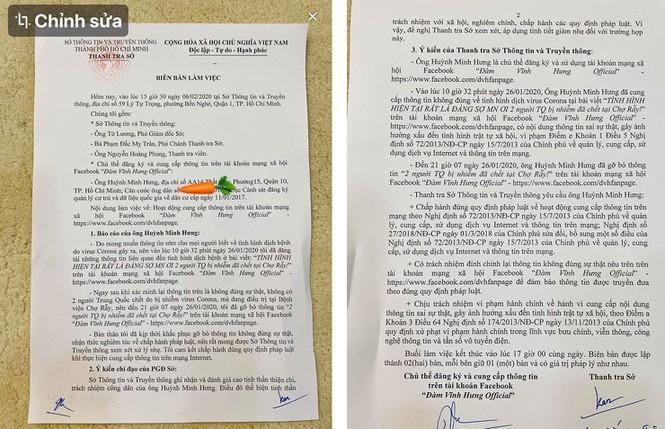 Chỉnh sửa
SỞ THÔNG TIN VÀ TRUYỀN THÔNG
THÀNH PHỐ HỒ CHÍ MINH
THANH TRA SỞ
CỘNG HÒA XÃ HỘI CHỦ NGHĨA VIỆT NAM
Độc lập - Tự do - Hạnh phúc
BIÊN BẢN LÀM VIỆC
Hôm nay, vào lúc 15 giờ 30 ngày 06/02/2020 tại Sở Thông tin và Truyền
thông, địa chỉ số 59 Lý Tự Trọng, phường Bến Nghé, Quận 1, TP. Hồ Chí Minh.
Chúng tôi gồm:
* Sở Thông tin và Truyền thông:
- Ông Từ Lương, Phó Giám đốc Sở;
- Bà Phạm Đắc Mỹ Trân, Phó Chánh Thanh tra Sở;
- Ông Nguyễn Hoàng Phong, Thanh tra viên.
* Chủ thể đăng ký và cung cấp thông tin trên tài khoản mạng xã hội
Facebook "Đàm Vĩnh Hưng Official":
- Ông Huỳnh Minh Hưng, địa chỉ số AA14 Phường15, Quận 10,
TP. Hồ Chí Minh; Căn cước công dân số Cục Cảnh sát đăng ký
quản lý cư trú và dữ liệu quốc gia về dân cư cấp ngày 11/01/2017.
Nội dung làm việc về: Hoạt động cung cấp thông tin trên tài khoản mạng
xã hội Facebook "Đàm Vĩnh Hưng Official" -
https://www.facebook.com/dvhfanpage.
1. Báo cáo của ông Huỳnh Minh Hưng:
- Do mong muốn thông tin sớm cho mọi người biết về tình hình dịch bệnh
do virus Corona gây ra, nên vào lúc 10 giờ 32 phút ngày 26/01/2020 tôi đã đăng
tải những thông tin liên quan đến tình hình dịch bệnh ở bài viết: "TÌNH HÌNH
HIỆN TẠI RẤT LÀ ĐÁNG SỢ MN ƠI 2 người TQ bị nhiễm đã chết tại Chợ Rẫy!"
trên tài khoản mạng xã hội Facebook "Đàm Vĩnh Hưng Official" -
https://www.facebook.com/dvhfanpage.
- Ngay sau khi xác minh lại thông tin trên là không đúng sự thật, không có
2 người Trung Quốc chết do bị nhiễm virus Corona, mà đang điều trị tại Bệnh
viện Chợ Rẫy, nên đến 21 giờ 07 ngày 26/01/2020, tôi đã gỡ bỏ thông tin "2
người TQ bị nhiễm đã chết tại Chợ Rẫy!" trên tài khoản mạng xã hội Facebook
"Đàm Vĩnh Hưng Official" - https://www.facebook.com/dvhfanpage.
- Bản thân tôi đã kịp thời khắc phục gỡ bỏ thông tin không đúng sự thật,
nhận thức nghiêm túc về chấp hành pháp luật, nên rất mong được Sở Thông tin
và Truyền thông xem xét xử lý nhẹ. Tôi cam kết chấp hành đúng quy định pháp luật
khi thực hiện cung cấp thông tin trên mạng xã hội.
2. Ý kiến chỉ đạo của PGĐ Sở:
Sở Thông tin và Truyền thông ghi nhận và đánh giá cao tinh thần thiện chí,
trách nhiệm công dân của ông Huỳnh Minh Hưng. Điều đó thể hiện tinh thần
2
trách nhiệm với xã hội, nghiêm chỉnh, chấp hành các quy định pháp luật. Vì
vậy, đề nghị Thanh tra Sở xem xét, áp dụng tình tiết giảm nhẹ đối với trường hợp
này.
3. Ý kiến của Thanh tra Sở Thông tin và Truyền thông:
- Ông Huỳnh Minh Hưng là chủ thể đăng ký và sử dụng tài khoản mạng xã
hội Facebook "Đàm Vĩnh Hưng Official" -
https://www.facebook.com/dvhfanpage.
- Vào lúc 10 giờ 32 phút ngày 26/01/2020, Ông Huỳnh Minh Hưng đã cung
cấp thông tin không đúng về tình hình dịch virus Corona tại bài viết "TÌNH HÌNH
HIỆN TẠI RẤT LÀ ĐÁNG SỢ MN ƠI 2 người TQ bị nhiễm đã chết tại Chợ Rẫy!"
trên tài khoản mạng xã hội Facebook "Đàm Vĩnh Hưng Official" -
https://www.facebook.com/dvhfanpage, có nội dung thông tin sai sự thật, gây ảnh
hưởng xấu đến tình hình trật tự xã hội, vi phạm Điểm e Khoản 1 Điều 5 Nghị
định số 72/2013/NĐ-CP ngày 15/7/2013 của Chính phủ về quản lý, cung cấp, sử
dụng dịch vụ Internet và thông tin trên mạng.
- Đến 21 giờ 07 ngày 26/01/2020, ông Huỳnh Minh Hưng đã gỡ bỏ thông
tin "2 người TQ bị nhiễm đã chết tại Chợ Rẫy!" trên tài khoản mạng xã hội
Facebook "Đàm Vĩnh Hưng Official" - https://www.facebook.com/dvhfanpage.
- Thanh tra Sở Thông tin và Truyền thông yêu cầu ông Huỳnh Minh Hưng:
+ Chấp hành đúng quy định pháp luật về hoạt động cung cấp thông tin trên
mạng theo Nghị định số 72/2013/NĐ-CP ngày 15/7/2013 của Chính phủ về quản
lý, cung cấp, sử dụng dịch vụ Internet và thông tin trên mạng; Nghị định số
27/2018/NĐ-CP ngày 01/3/2018 của Chính phủ sửa đổi, bổ sung một số điều của
Nghị định số 72/2013/NĐ-CP ngày 15/7/2013 của Chính phủ về quản lý, cung
cấp, sử dụng dịch vụ Internet và thông tin trên mạng.
+ Có trách nhiệm đính chính lại thông tin không đúng sự thật nêu trên trên
tài khoản mạng xã hội Facebook "Đàm Vĩnh Hưng Official" -
https://www.facebook.com/dvhfanpage để đảm bảo thông tin được truyền đưa
theo đúng quy định pháp luật.
+ Chịu trách nhiệm vi phạm hành chính về hành vi cung cấp nội dung
thông tin sai sự thật, gây ảnh hưởng xấu đến tình hình trật tự xã hội, theo Điểm a
Khoản 3 Điều 64 Nghị định số 174/2013/NĐ-CP ngày 13/11/2013 của Chính phủ
quy định xử phạt vi phạm hành chính trong lĩnh vực bưu chính, viễn thông, công
nghệ thông tin và tần số vô tuyến điện.
Buổi làm việc kết thúc vào lúc 17 giờ 00 cùng ngày. Biên bản được lập
thành 02(hai) bản, mỗi bên giữ 01 (một) bản và có giá trị pháp lý như nhau.
Chủ thể đăng ký và cung cấp thông tin
trên tài khoản Facebook
"Đàm Vĩnh Hưng Official"
Thanh tra Sở